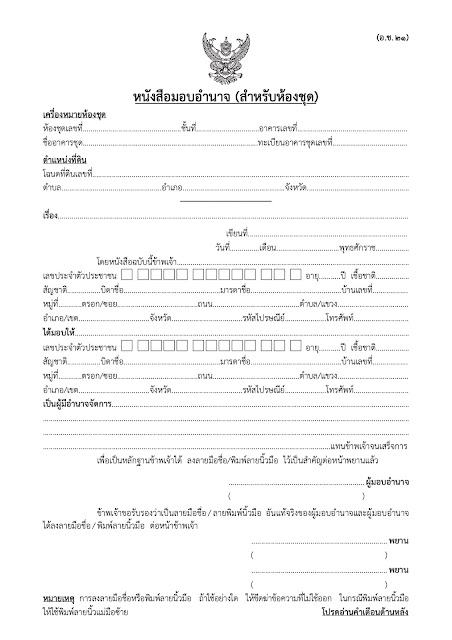 (อ.ช.๒๑)
หนังสือมอบอำนาจ (สำหรับห้องชุด)
เครื่องหมายห้องชุด
ห้องชุดเลขที่..............................ชั้นที่....................อาคารเลขที่..............................
ชื่ออาคารชุด..................................................ทะเบียนอาคารชุดเลขที่.........................
ตำแหน่งที่ดิน
โฉนดที่ดินเลขที่....................................................................................................
ตำบล..............................อำเภอ..............................จังหวัด..............................
เรื่อง....................................................................................................
เขียนที่..................................................
วันที่............เดือน.........................พุทธศักราช............
โดยหนังสือฉบับนี้ข้าพเจ้า................................................................................
เลขประจำตัวประชาชน □ □□□□ □□□□□ □□ □ อายุ.........ปี เชื้อชาติ............
สัญชาติ............บิดาชื่อ..............................มารดาชื่อ..............................บ้านเลขที่............
หมู่ที่.........ตรอก/ซอย.........................ถนน..............................ตำบล/แขวง.........................
อำเภอ/เขต.........................จังหวัด.........................รหัสไปรษณีย์...............โทรศัพท์....................
ได้มอบให้....................................................................................................
เลขประจำตัวประชาชน □ □□□□ □□□□□ □□ □ อายุ.........ปี เชื้อชาติ............
สัญชาติ............บิดาชื่อ..............................มารดาชื่อ..............................บ้านเลขที่............
หมู่ที่.........ตรอก/ซอย.........................ถนน..............................ตำบล/แขวง.........................
อำเภอ/เขต.........................จังหวัด.........................รหัสไปรษณีย์...............โทรศัพท์....................
เป็นผู้มีอำนาจจัดการ..........................................................................................
....................................................................................................
....................................................................................................
..........................................................................................แทนข้าพเจ้าจนเสร็จการ
เพื่อเป็นหลักฐานข้าพเจ้าได้ ลงลายมือชื่อ/พิมพ์ลายนิ้วมือ ไว้เป็นสำคัญต่อหน้าพยานแล้ว
.................................................. ผู้มอบอำนาจ
( )
ข้าพเจ้าขอรับรองว่าเป็นลายมือชื่อ / ลายพิมพ์นิ้วมือ อันแท้จริงของผู้มอบอำนาจและผู้มอบอำนาจ
ได้ลงลายมือชื่อ / พิมพ์ลายนิ้วมือ ต่อหน้าข้าพเจ้า
.................................................. พยาน
( )
.................................................. พยาน
( )
หมายเหตุ การลงลายมือชื่อหรือพิมพ์ลายนิ้วมือ ถ้าใช้อย่างใด ให้ขีดฆ่าข้อความที่ไม่ใช้ออก ในกรณีพิมพ์ลายนิ้วมือ
ให้ใช้พิมพ์ลายนิ้วแม่มือซ้าย โปรดอ่านคำเตือนด้านหลัง